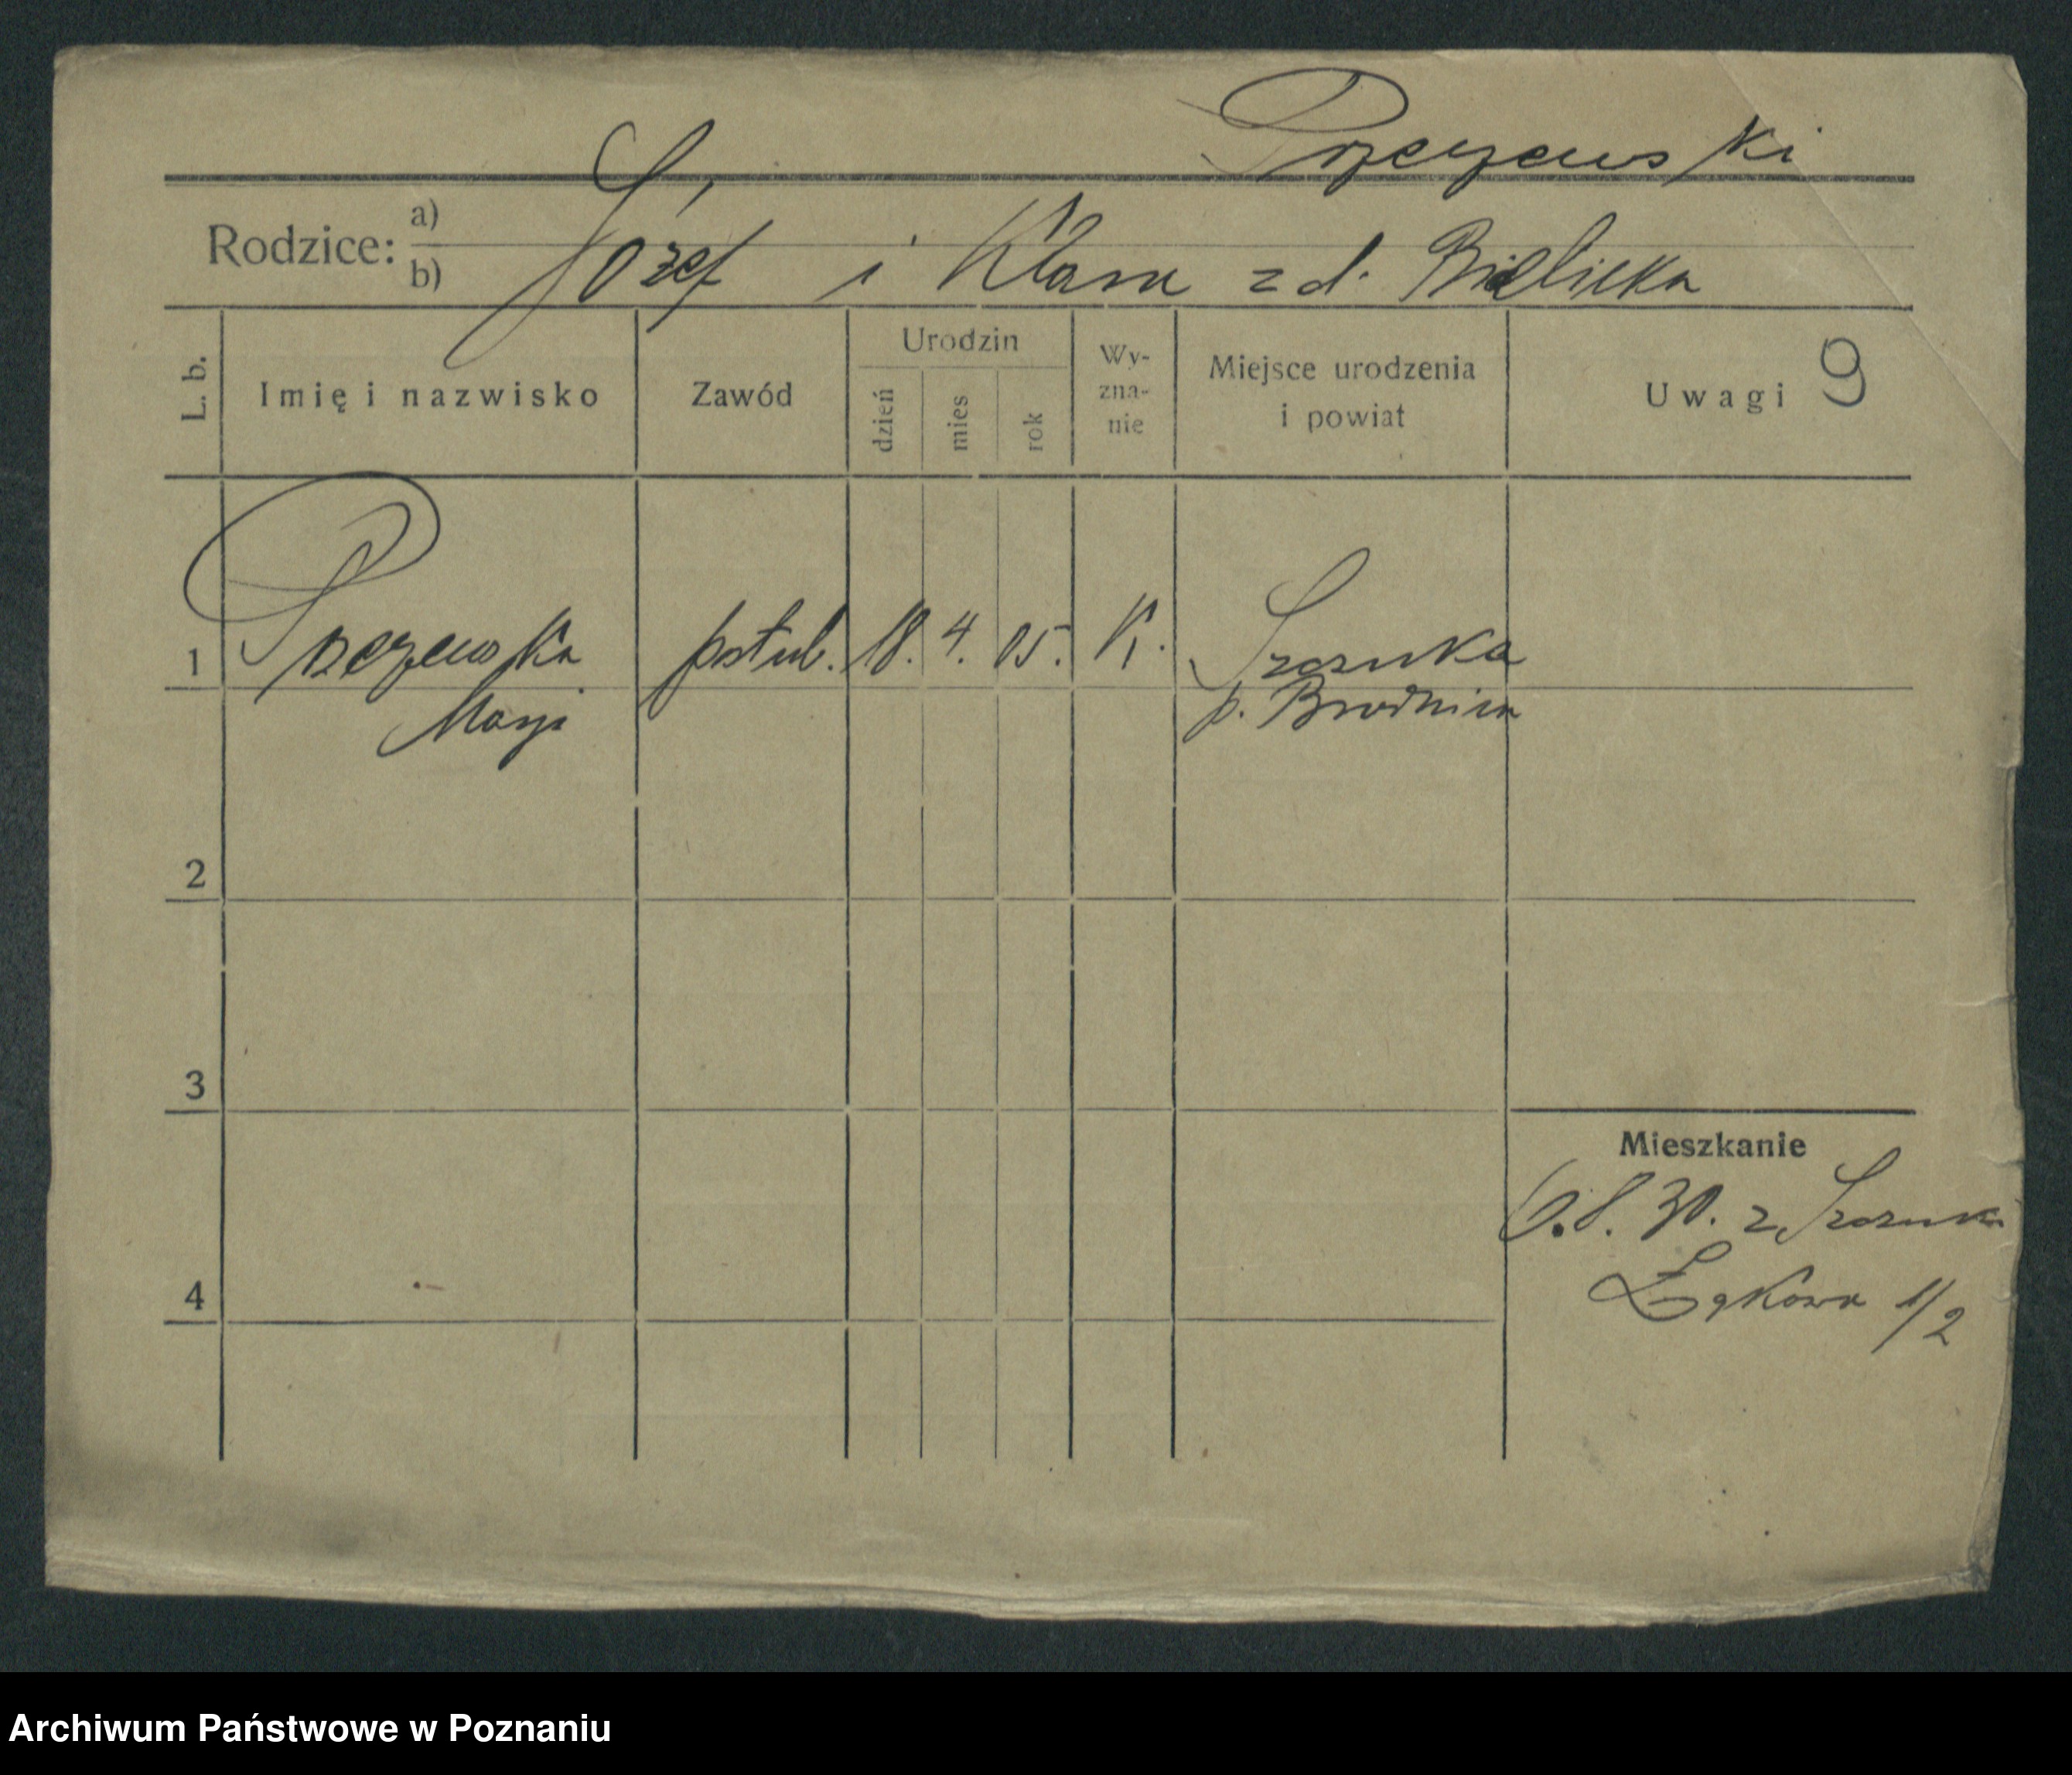 Przeczewski
Rodzice: a)
b) Józef i Klara z d. Bielicka
L. b. Imię i nazwisko Zawód Urodzin dzień mies rok Wy-zna-nie Miejsce urodzenia i powiat Uwagi 9
1 postul. 18. 4. 05. K. Szczuka
p. Brodnica
2
3
Mieszkanie
6.8.30. z Szczuk
4 Łąkowa 1/2
Archiwum Państwowe w Poznaniu